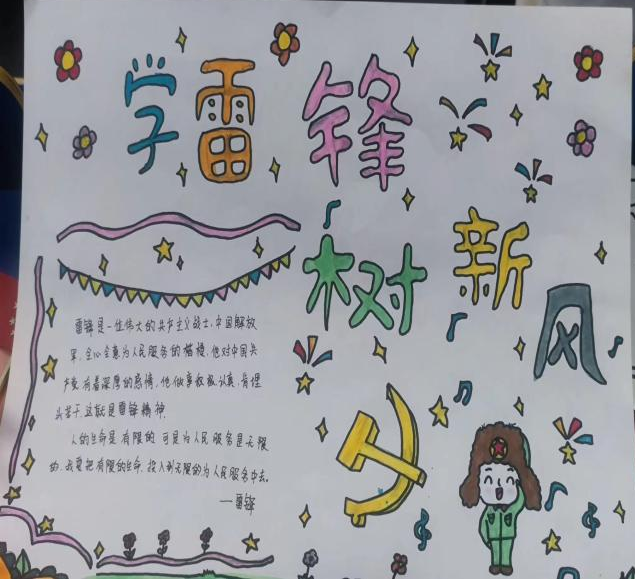 学雷锋
树新风
雷锋是一位伟大的共产主义战士,中国解放
军,全心全意为人民服务的楷模,他对中国共
产党有着深厚的感情,他做事积极认真,肯埋
头苦干,这就是雷锋精神.
人的生命是有限的,可是为人民服务是无限
的,我要把有限的生命,投入到无限的为人民服务中去。
——雷锋